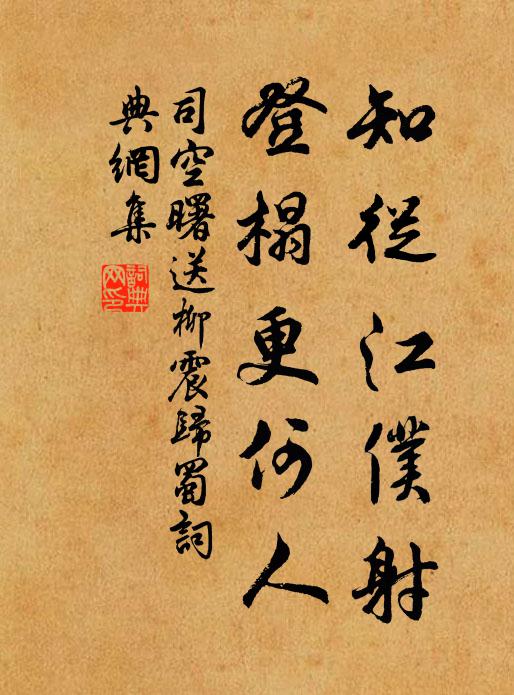 知從江僕射
登榻更何人
司空曙送柳震歸蜀詞
典網集
詞典网印